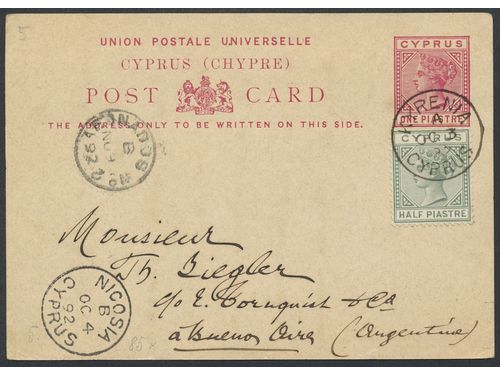 5
UNION POSTALE UNIVERSELLE
CYPRUS (CHYPRE)
POST CARD
THE ADDRESS ONLY TO BE WRITTEN ON THIS SIDE.
CYPRUS
ONE PIASTRE
KYRENIA
A
OC 3
92
CYPRUS
HALF PIASTRE
B
NO
92
Monsieur
Th. Ziegler
c/o E. Cornquist & Co
a Buenos Aires (Argentine)
NICOSIA
B
OC 4
92
CYPRUS
85